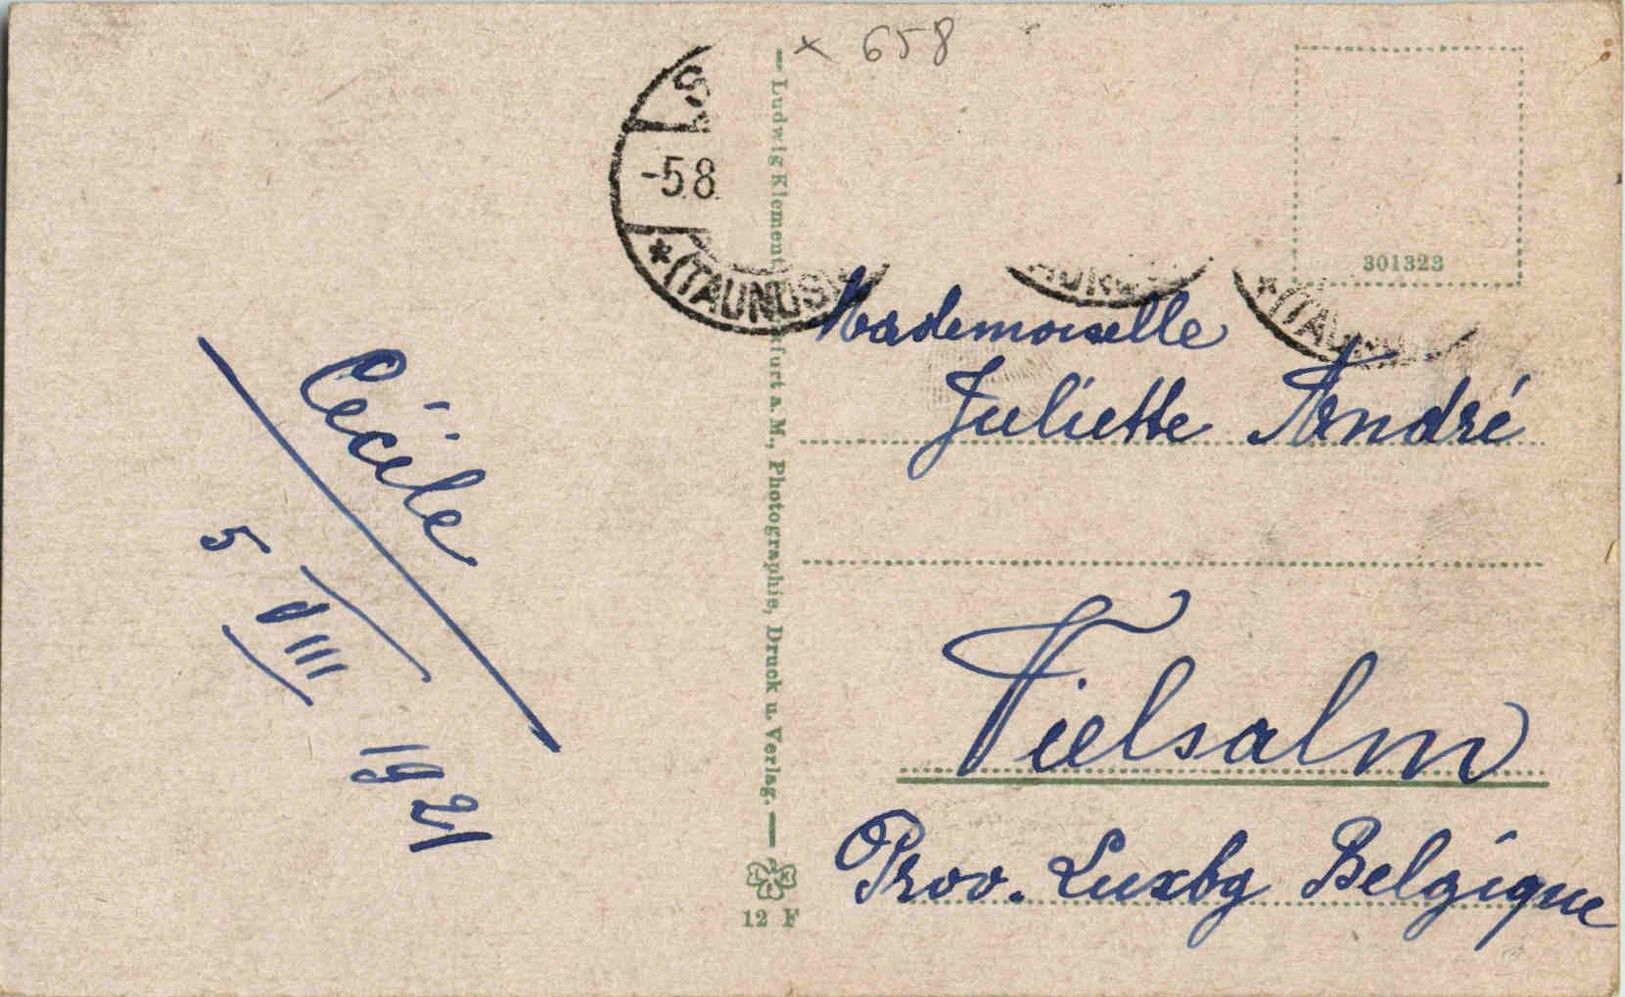 × 658
-5.8.
*(TAUNUS)
*(TAUNUS
301323
Ludwig Klement, Frankfurt a. M., Photographie, Druck u. Verlag.
12 F
Cécile
5
VIII
1921
Mademoiselle
Juliette André
Vielsalm
Prov. Luxbg Belgique